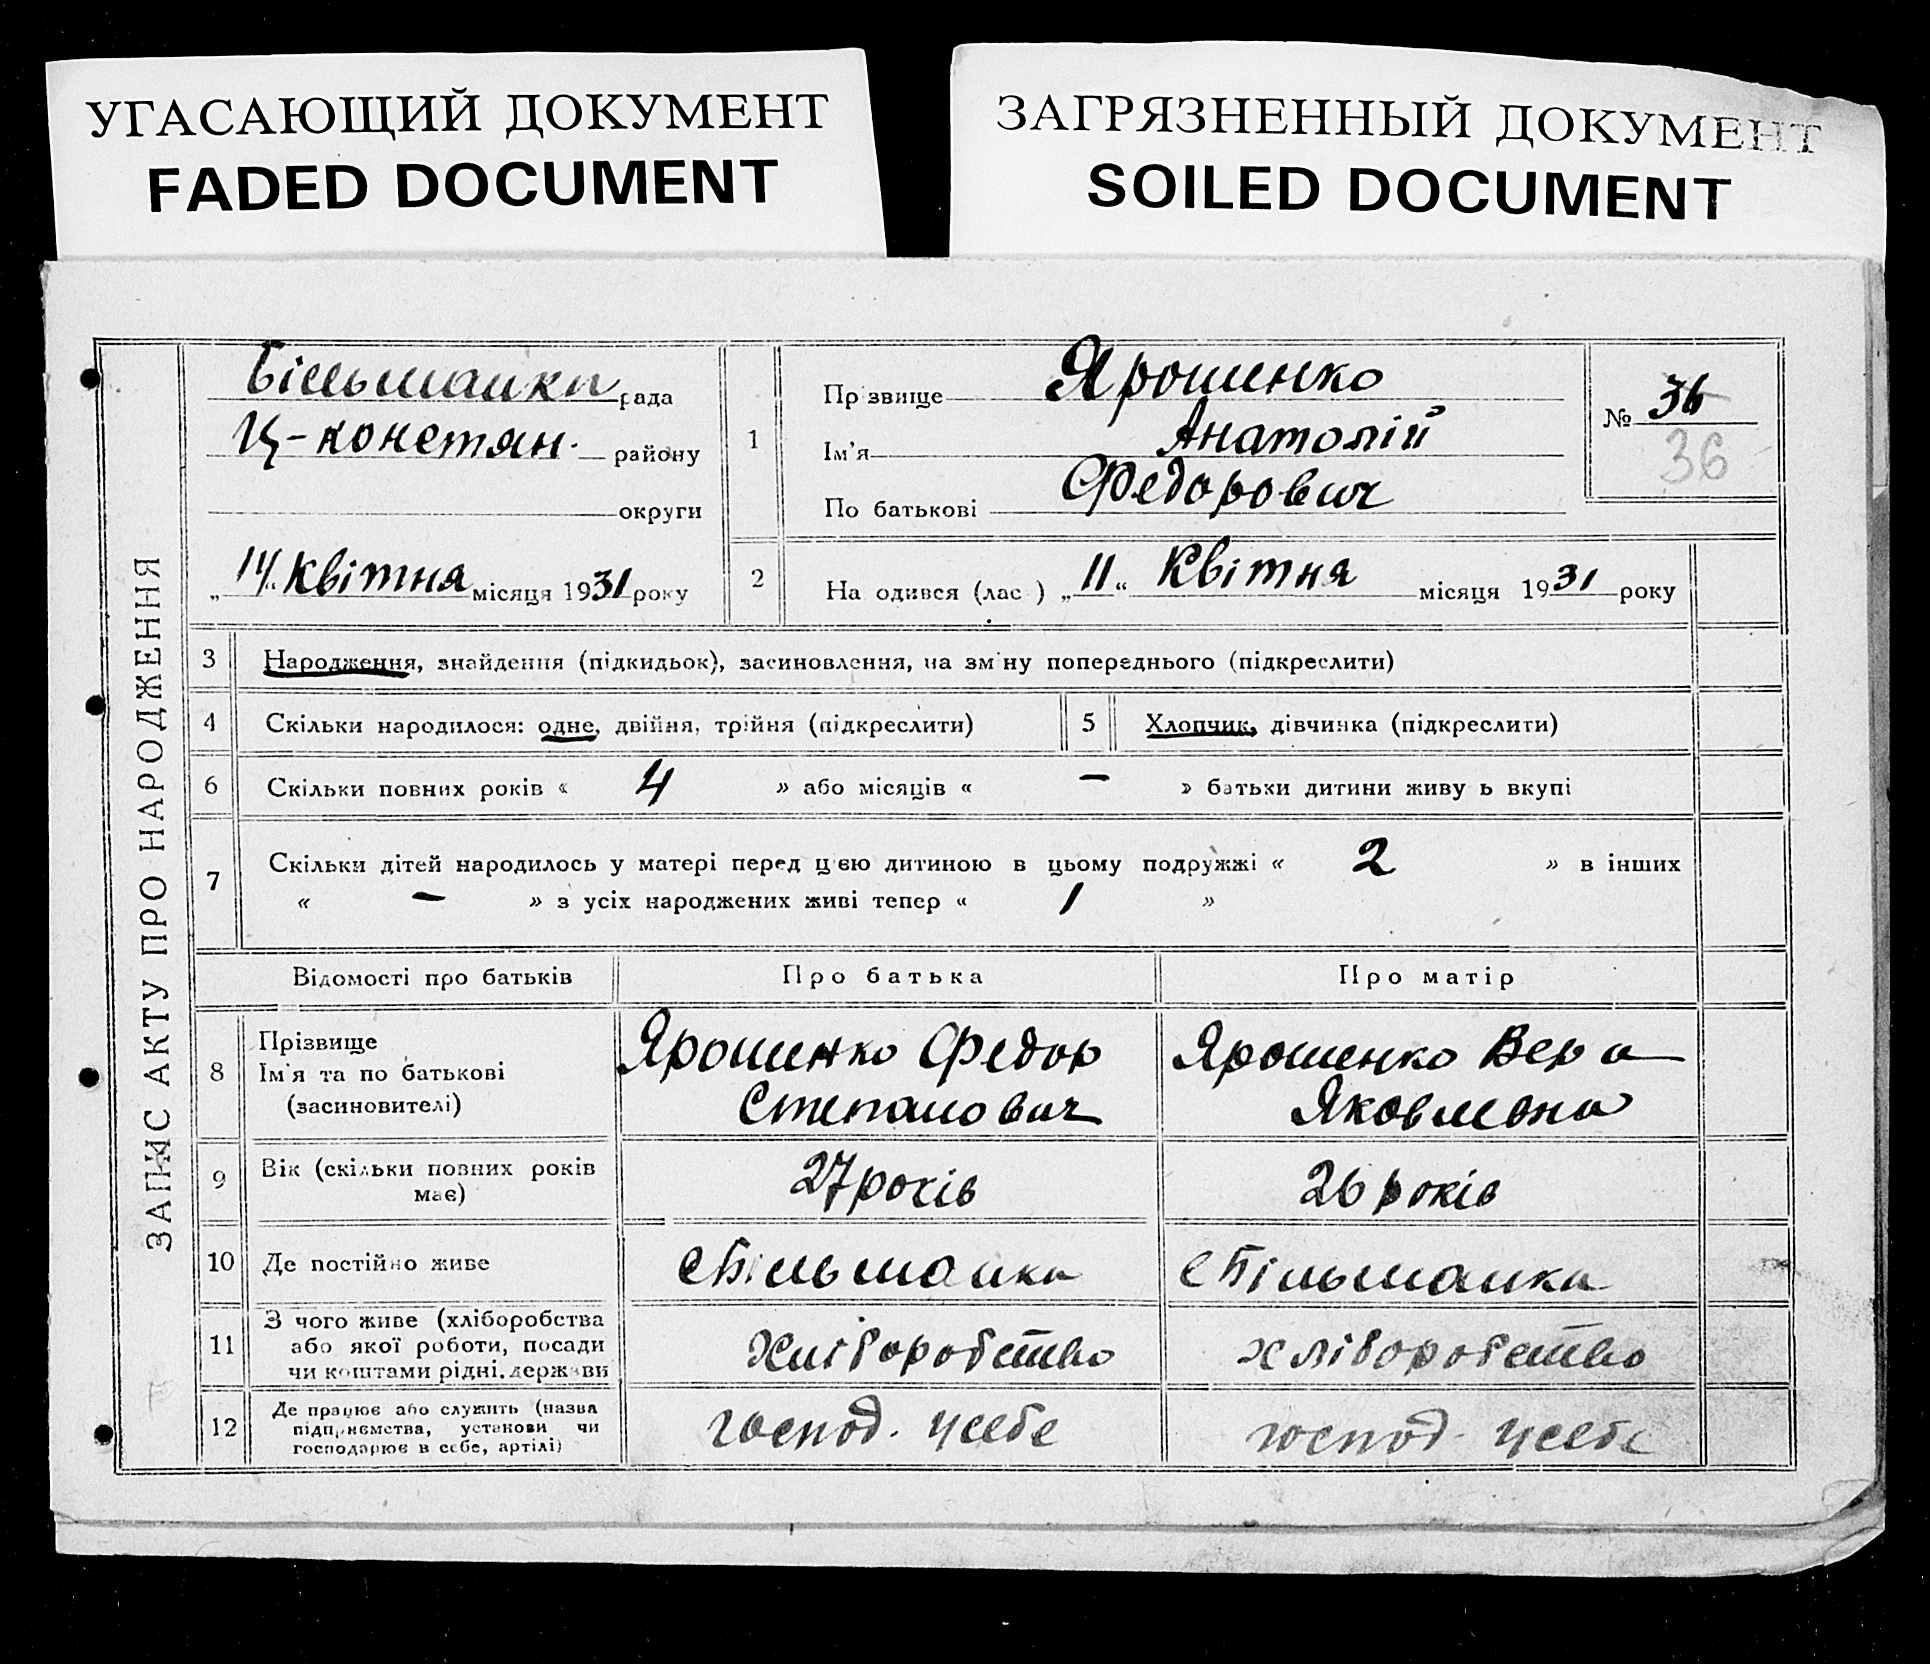 УГАСАЮЩИЙ ДОКУМЕНТ
FADED DOCUMENT
ЗАГРЯЗНЕННЫЙ ДОКУМЕНТ
SOILED DOCUMENT
ЗАПИС АКТУ ПРО НАРОДЖЕННЯ
Більшанка рада
Ц-констян. району
округи
„14“ Квітня місяця 1931 року
1
Прізвище Ярошенко
Ім'я Анатолій
По батькові Федорович
№ 36
36
2 На одився (лас ) „11“ Квітня місяця 1931 року
3 Народження, знайдення (підкидьок), засиновлення, на зміну попереднього (підкреслити)
4 Скільки народилося: одне, двійня, трійня (підкреслити) 5 Хлопчик, дівчинка (підкреслити)
6 Скільки повних років « 4 » або місяців « – » батьки дитини живу ь вкупі
7 Скільки дітей народилось у матері перед цією дитиною в цьому подружжі « 2 » в інших
« – » з усіх народжених живі тепер « 1 »
Відомості про батьків Про батька Про матір
8
Прізвище
Ім'я та по батькові
(засиновителі)
Ярошенко Федор
Степанович
Ярошенко Вера
Яковлевна
9
Вік (скільки повних років
має)
27 років
26 років
10 Де постійно живе
с Більшанка
с Більшанка
11
З чого живе (хліборобства
або якої роботи, посади
чи коштами рідні, держави
хліборобство
хліборобство
12
Де працює або служить (назва
підприємства, установи чи
господарює в себе, артілі)
господ. у себе
господ. у себе